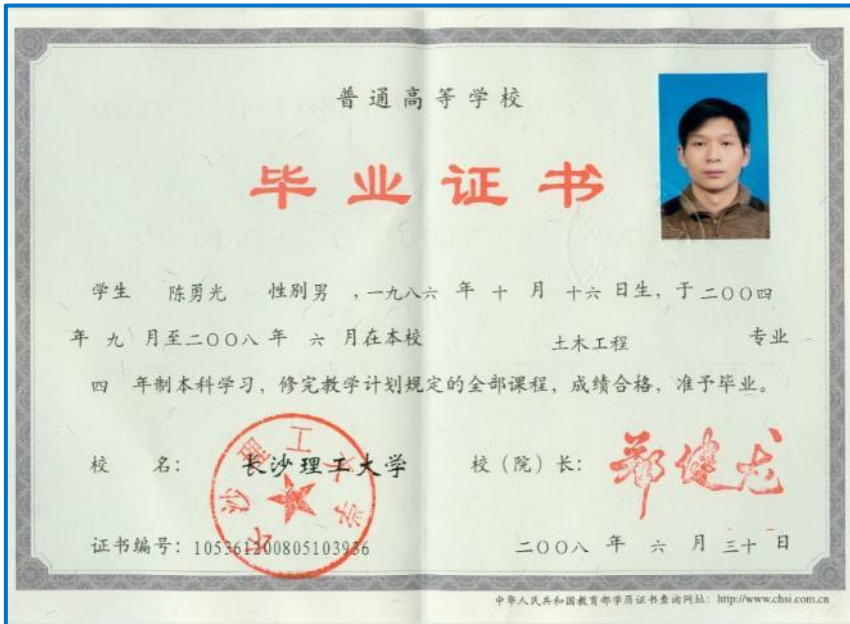 普通高等学校
毕业证书
学生 陈勇光 性别男 ,一九八六 年 十 月 十六 日生, 于 二〇〇四
年 九 月至二〇〇八 年 六 月在本校 土木工程 专业
四 年制本科学习, 修完教学计划规定的全部课程, 成绩合格, 准予毕业。
校 名: 长沙理工大学 校 (院) 长: 郑健龙
长沙理工大学
证书编号: 105361200805103936 二〇〇八 年 六 月 三十 日
中华人民共和国教育部学历证书查询网址: http://www.chsi.com.cn